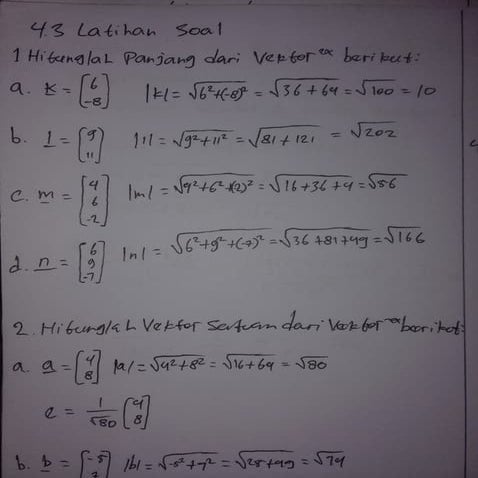 4.3 Latihan Soal
1 Hitunglah Panjang dari Vektor²ˣ berikut:
a. k = [6 -8] |k| = √6²+(-8)² = √36+64 = √100 = 10
b. l = [9 11] |l| = √9²+11² = √81+121 = √202
c. m = [4 6 -2] |m| = √4²+6²+(2)² = √16+36+4 = √56
d. n = [6 9 -7] |n| = √6²+9²+(-7)² = √36+81+49 = √166
2. Hitunglah Vektor Satuan dari Vektor²ˣ berikut:
a. a = [4 8] |a| = √4²+8² = √16+64 = √80
e = 1/√80 [4 8]
b. b = [-5 7] |b| = √-5²+7² = √25+49 = √74